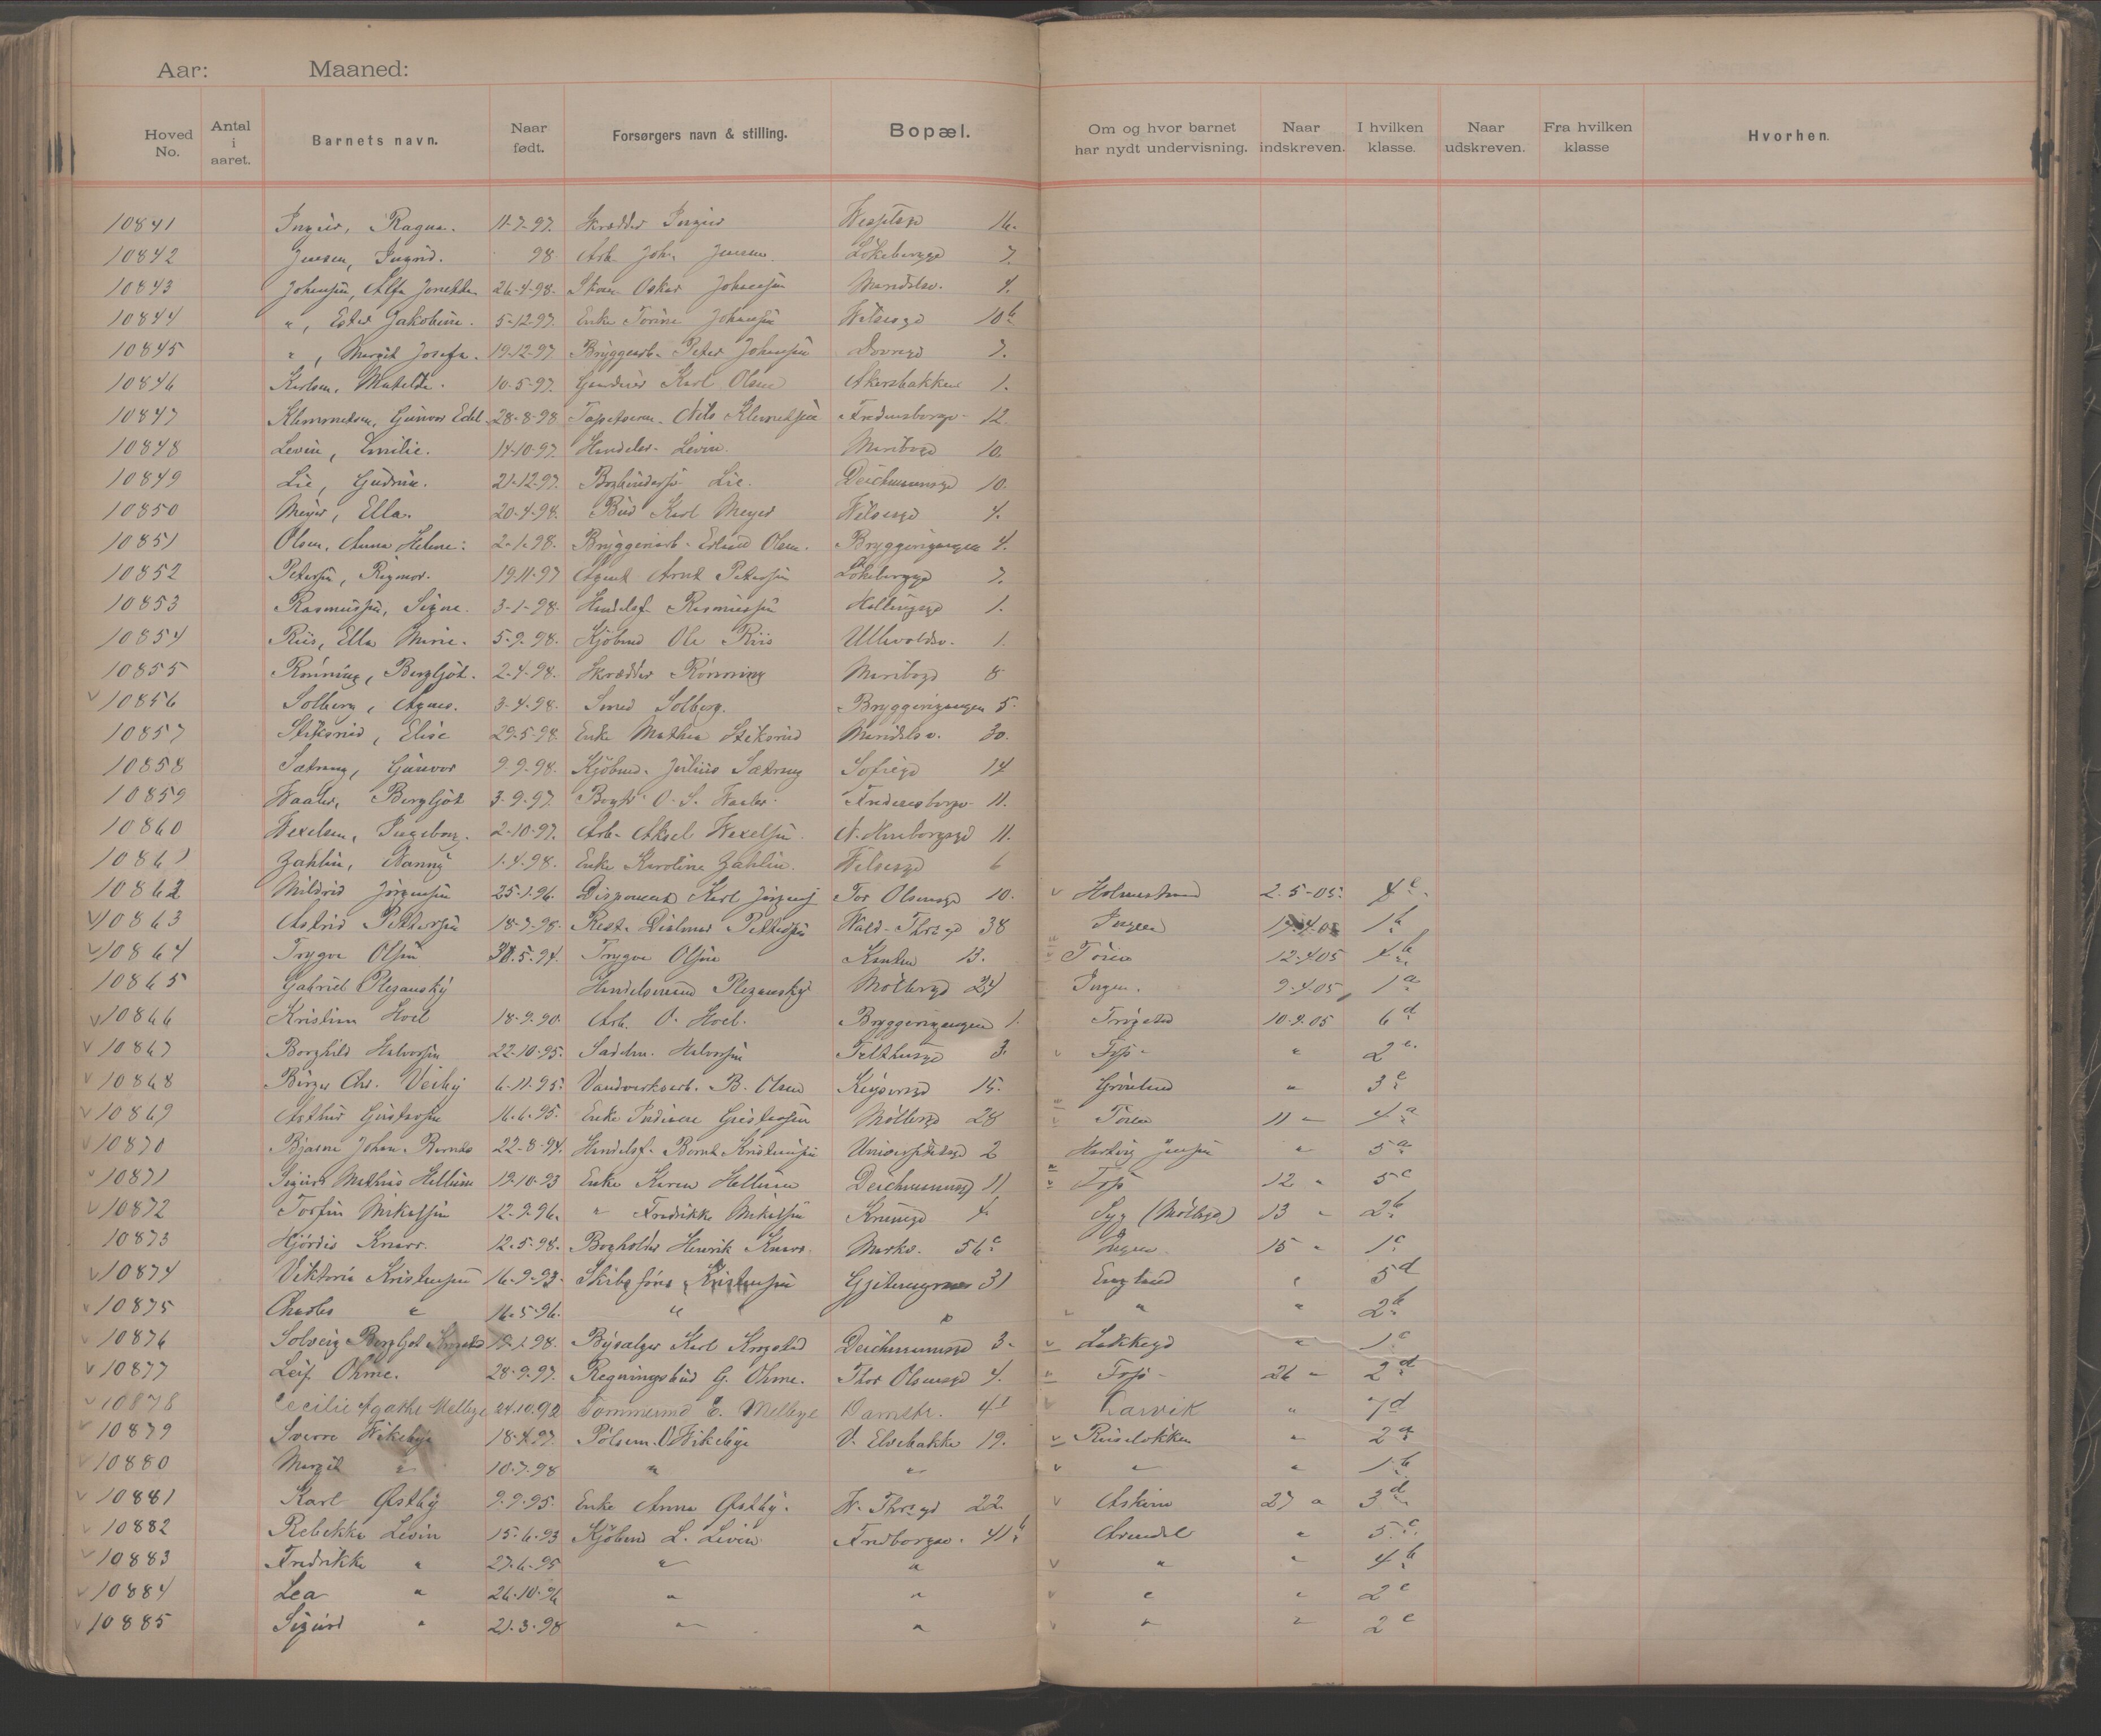 Aar: Maaned:
Hoved No. Antal i aaret. Barnets navn. Naar født. Forsørgers navn & stilling. Bopæl. Om og hvor barnet har nydt undervisning. Naar indskreven. I hvilken klasse. Naar udskreven. Fra hvilken klasse Hvorhen.
10841 Ragna. 11-7-97. Skrædder 16.
10842 Jensen, Ingrid. 98 Arb. Joh. Jensen Løkeberggd 7.
10843 Johansen, Alfa 26-4-98. Oskar Johansen Maridalsv. 4.
10844 " , Ester Jakobine. 5-12-97. Enke Torine Johansen Wilsesgd 10b
10845 " , Margit Josefa. 19-12-97. Bryggearb. Peter Johansen Dovregd 7.
10846 Karlsen, Matilde. 10-5-97. Karl Olsen Akersbakken 1.
10847 Klemmetsen, Gunvor Edel 28-8-98 Nils Klemetsen Fredensborgv. 12.
10848 Levin, Emilie. 14-10-97. Handelsr. Levin. Maribogd 10.
10849 Lie, Gudrun. 21-12-97. Lie. Deichmannsgd 10.
10850 Meyer, Ella. 20-4-98. Bud Karl Meyer Wilsesgd 4.
10851 Olsen, Anna Helene. 2-1-98. Bryggeriarb. Erland Olsen. Bryggerigangen 4.
10852 Petersen, Rigmor. 19.11-97 Agent Arnt Petersen Løkeberggd 7.
10853 Rasmussen, Signe. 3-1-98. Handelsf. Rasmussen 1.
10854 Riis, Ella Marie. 5-9-98. Kjøbmd Ole Riis Ullevoldsv. 1.
10855 Rønning, Bergljot. 2-4-98. Skrædder Rønning Maribogd 8
10856 Solberg, Agnes. 3-4-98. Smed Solberg. Bryggerigangen 5.
10857 Stiksrud, Elise 29-5-98. Enke Mathea Stiksrud Maridalsv. 30.
10858 Sætrang, Gunvor 9-9-98. Kjøbmd. Julius Sætrang Sofiegd 14
10859 Waaler, Bergljot 3-9-97. O. S. Waaler. Fredensborgv. 11.
10860 Wexelsen, Ingeborg. 2-10-97. Arb. Aksel Wexelsen. 11.
10861 Zahlin, Nanny 1-4-98. Enke Karoline Zahlin. Wilsesgd 6
10862 Mildrid Jørgensen 25-1-96. Disponent Karl Jørgens Tor Olsensgd 10. v Holmestrand 2-5-05. 4c.
v10863 Astrid Pettersen 18-7-98. Pettersen Wald. Thrsgd 38 Ingen 1b
v10864 Trygve Olsen 30.5-94. Trygve Olsen 13. Tøien 12-4 05 4b
10865 Gabriel Plezansky Handelsmand Plezansky Møllergd 24 Ingen. 9-4-05 1a
v10866 Kristian Hoel 18-9-90. Arb. O. Hoel. Bryggerigangen 1. Trøgstad 10-9.05 6d
v10867 Borghild Halvorsen 22-10-95. Halvorsen Telthusgd 3. v Fos- " 2c.
v10868 Birger Chr. Veiby 6-11-95. Vandverksarb. B. Olsen Keysersgd 15. Grønland " 3c
v10869 Arthur Gustavsen 16-6-95. Enke Gustavsen Møllergd 28 Tøien 11 " 4a
v10870 Bjarne Johan Berntd 22-8-94. Handelsf. Bernt Kristensen Universitetsgd 2 " 5a
v10871 Sigurd Mathias Hellum 19-10-93 Enke Karen Hellum Deichmannsgd 11 Fos 12 " 5c
v10872 Torfin Mikelsen 12-9-96. " Fredrikke Mikelsen 4. (Møllergd) 13 " 2b
10873 Hjørdis Knarr. 12-5-98. Bogholder Henrik Knarr. Markv. 56c Ingen 15 " 1c
v10874 Viktoria Kristensen 16-9-93. Skibsfører Kristensen 31 England " 5d
v10875 Charles " 16-5-96. " " v " " 2b
v10876 Solveig Bergljot 19-1-98. Karl Deichmannsgd 3. v Lakkegd " 1c
v10877 Leif Ohme. 28-9-97. Regningsbud G. Ohme. Thor Olsensgd 4. Fos- 26 " 2d
v10878 Cecilie Agathe Melbye 24.10.92 Tømmermd E. Melbye Damstr. 41 v Larvik " 7d
10879 Sverre Wikebye 18-4.97. Wikebye V. Elvebakke 19. v Ruseløkken " 2a
v10880 Margit " 10-7-98 " " v " " 1b
v10881 Karl Østby 9-9-95. Enke Anna Østby. W. Thrsgd 22. v Askim 27 " 3d
v10882 Rebekka Levin 15-6-93 Kjøbmd L. Levin. Fredborgsv. 41b Arendal " 5c.
v10883 Fredrikke " 27-6-95 " " v " " 4b
v10884 Lea " 26-10-96 " " v " " 2c
v10885 Sigurd " 21-3-98 " " v " " 2c